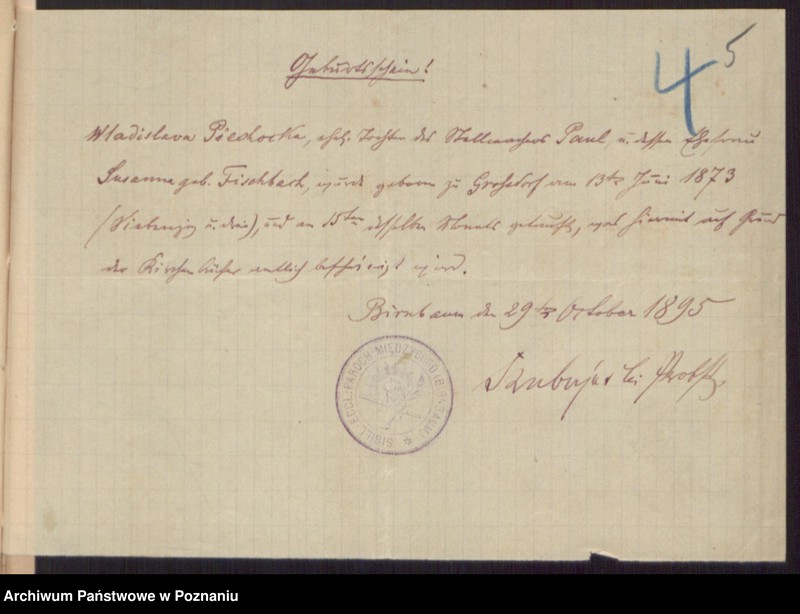 4 5
Geburtsschein!
Wladislava Piechocka, ehel. Tochter des Stellmachers Paul, u. dessen Ehefrau
Susanna geb. Fischbach, wurde geboren zu Großdorf am 13ten Juni 1873
(Siebenzig u. drei), und am 15ten desselben Monats getauft, was hiermit auf Grund
der Kirchenbücher amtlich bescheinigt wird.
Birnbaum den 29ten October 1895
Probst
SIGILL. ECCL. PAROCH. MIĘDZYCHOD (BIRNBAUM)
Archiwum Państwowe w Poznaniu